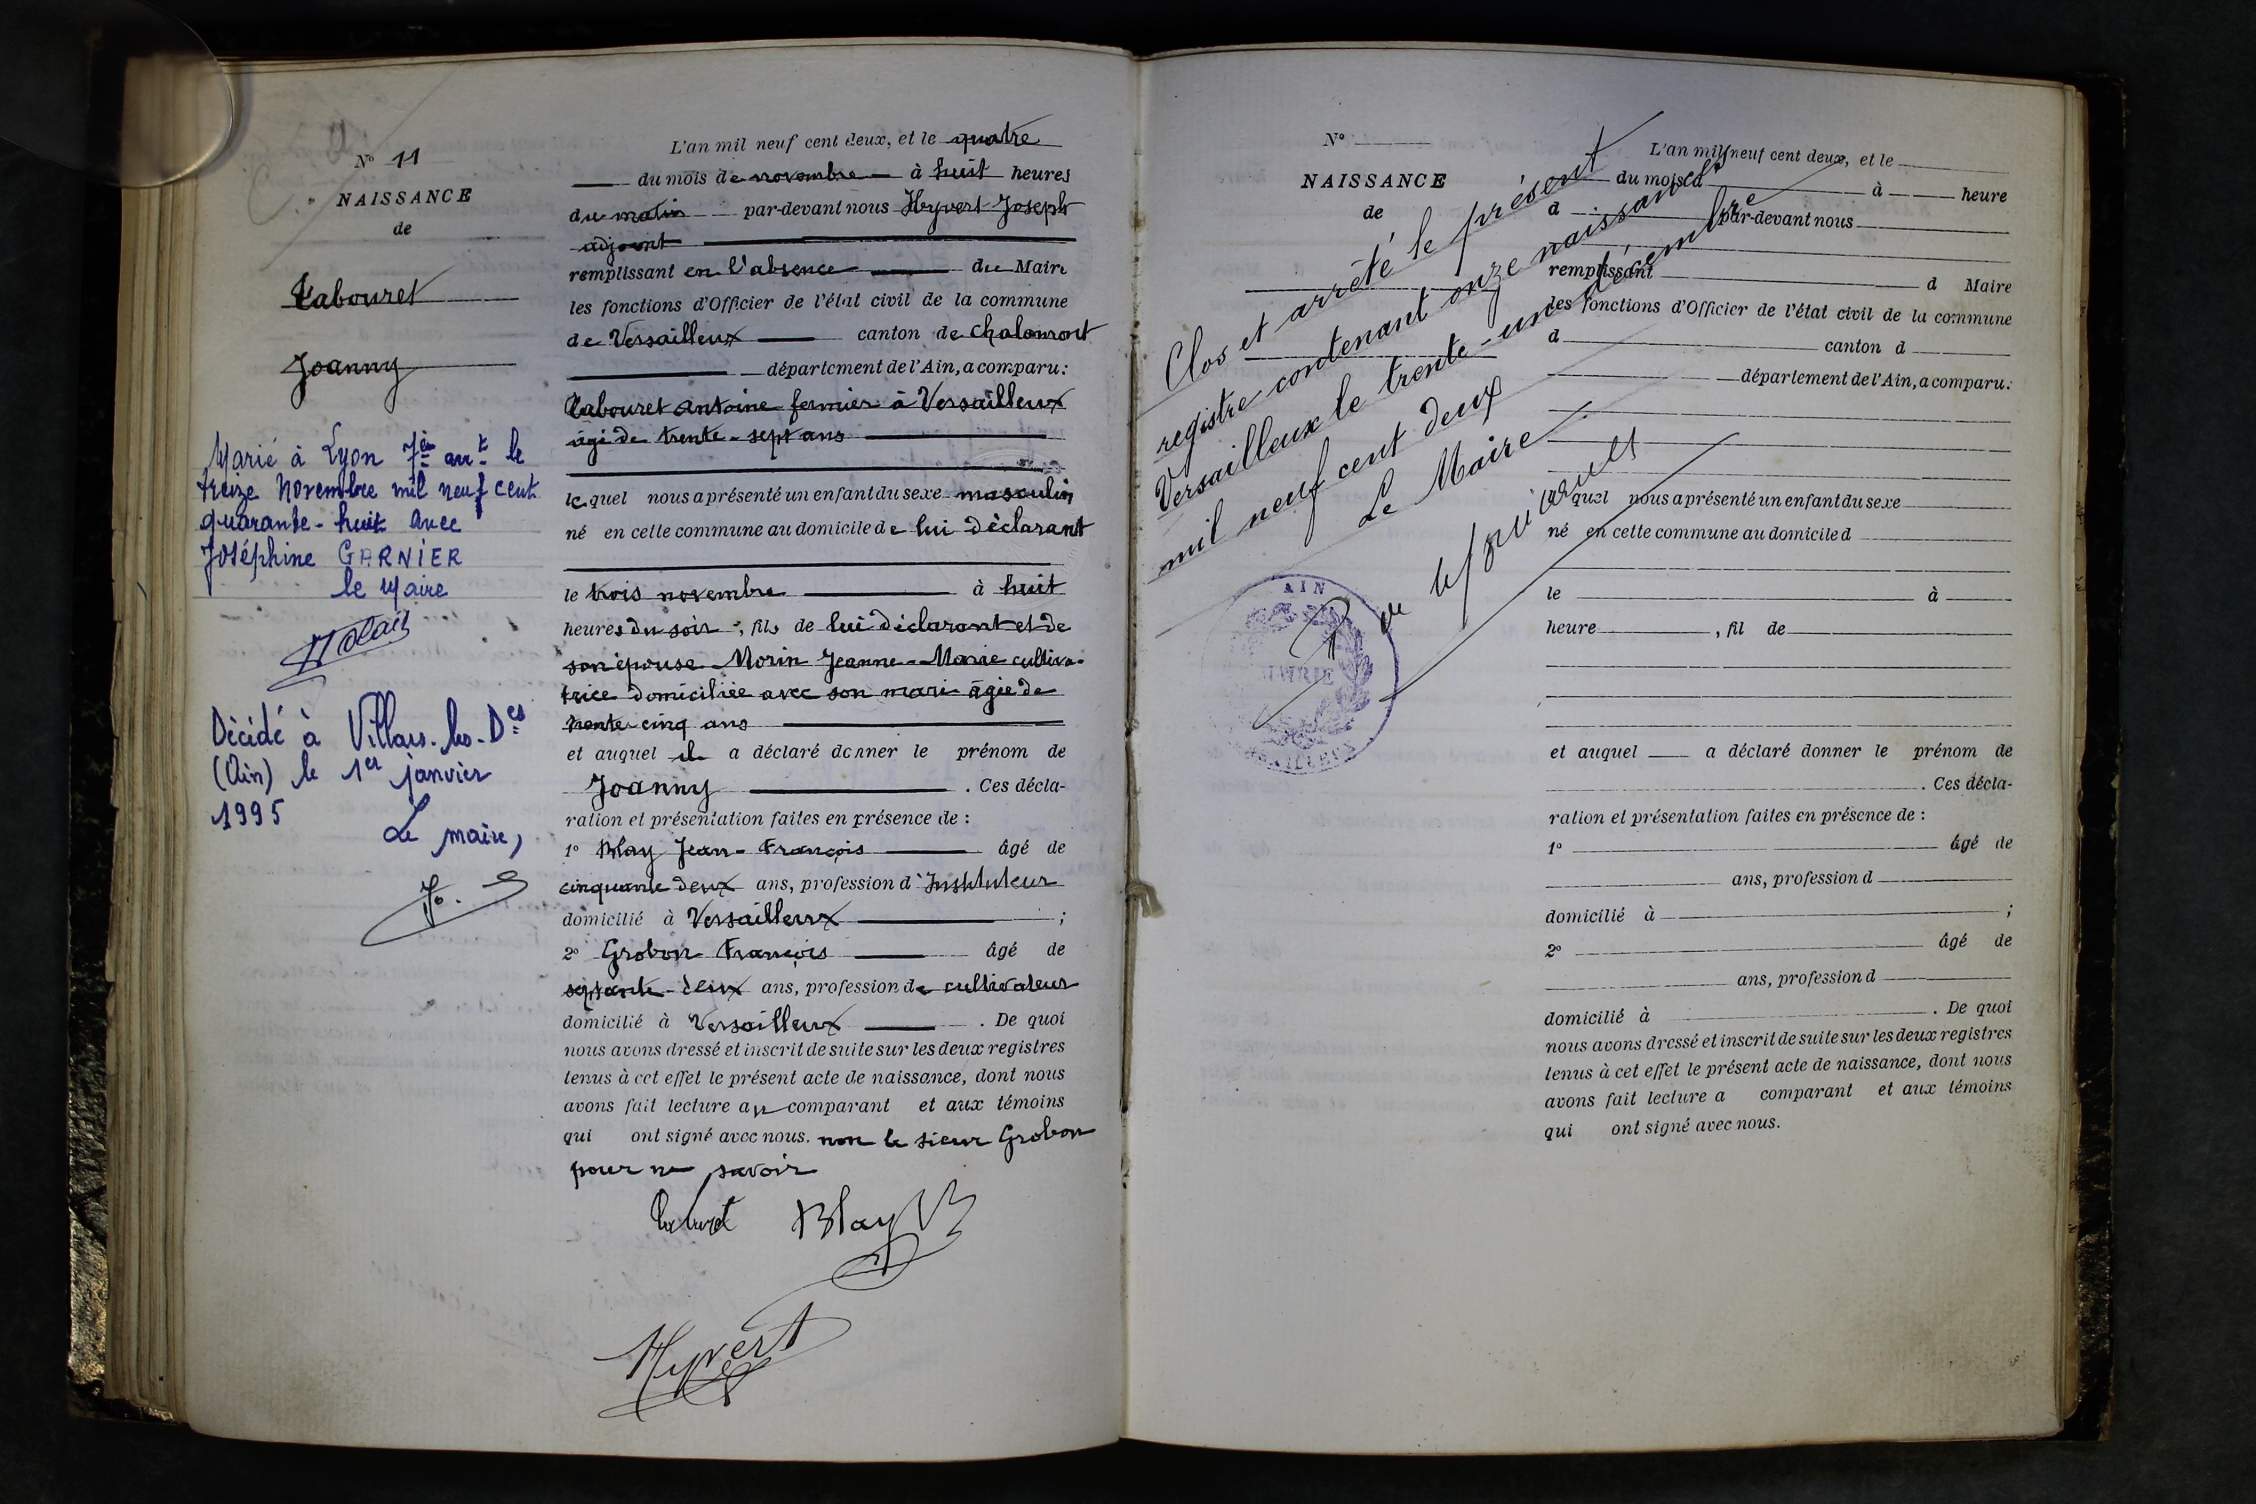 N° 11
NAISSANCE
de
Tabouret
Joanny
Marié à Lyon 7è arrt le
treize Novembre mil neuf cent
quarante-huit avec
Joséphine GARNIER
le Maire
Décédé à Villars-les-Des
(Ain) le 1er janvier
1995
Le maire,
L'an mil neuf cent deux, et le quatre
du mois de novembre à huit heures
du matin par-devant nous Hyvert Joseph
adjoint
remplissant en l'absence du Maire
les fonctions d'Officier de l'état civil de la commune
de Versailleux canton de Chalamont
département de l'Ain, a comparu:
Tabouret Antoine fermier à Versailleux
âgé de trente-sept ans
lequel nous a présenté un enfant du sexe masculin
né en cette commune au domicile de lui déclarant
le trois novembre à huit
heures du soir, fils de lui déclarant et de
son épouse Morin Jeanne-Marie cultiva-
trice domiciliée avec son mari âgée de
trente-cinq ans
et auquel il a déclaré donner le prénom de
Joanny. Ces décla-
ration et présentation faites en présence de :
1° Blay Jean-François âgé de
cinquante deux ans, profession d'Instituteur
domicilié à Versailleux ;
2° Grobon François âgé de
septante-deux ans, profession de cultivateur
domicilié à Versailleux. De quoi
nous avons dressé et inscrit de suite sur les deux registres
tenus à cet effet le présent acte de naissance, dont nous
avons fait lecture au comparant et aux témoins
qui ont signé avec nous. non le sieur Grobon
pour ne savoir
Tabouret Blay
Hyvert
N°
NAISSANCE
de
Clos et arrêté le présent
registre contenant onze naissances
Versailleux le trente-un décembre
mil neuf cent deux
Le Maire
AIN
MAIRIE
L'an mil neuf cent deux, et le
du mois d à heure
d par-devant nous
remplissant d Maire
les fonctions d'Officier de l'état civil de la commune
d canton d
département de l'Ain, a comparu:
quel nous a présenté un enfant du sexe
né en cette commune au domicile d
le à
heure , fil de
et auquel a déclaré donner le prénom de
. Ces décla-
ration et présentation faites en présence de :
1° âgé de
ans, profession d
domicilié à ;
2° âgé de
ans, profession d
domicilié à . De quoi
nous avons dressé et inscrit de suite sur les deux registres
tenus à cet effet le présent acte de naissance, dont nous
avons fait lecture a comparant et aux témoins
qui ont signé avec nous.